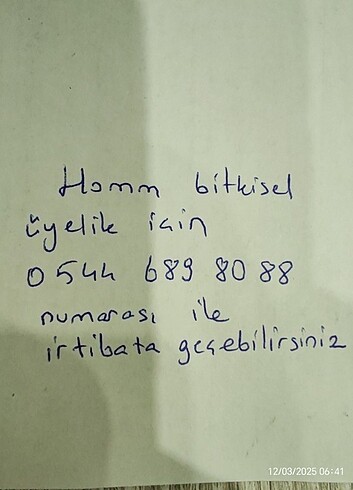 Homm bitkisel
üyelik için
0 544 689 80 88
numarası ile
irtibata geçebilirsiniz
12/03/2025 06:41